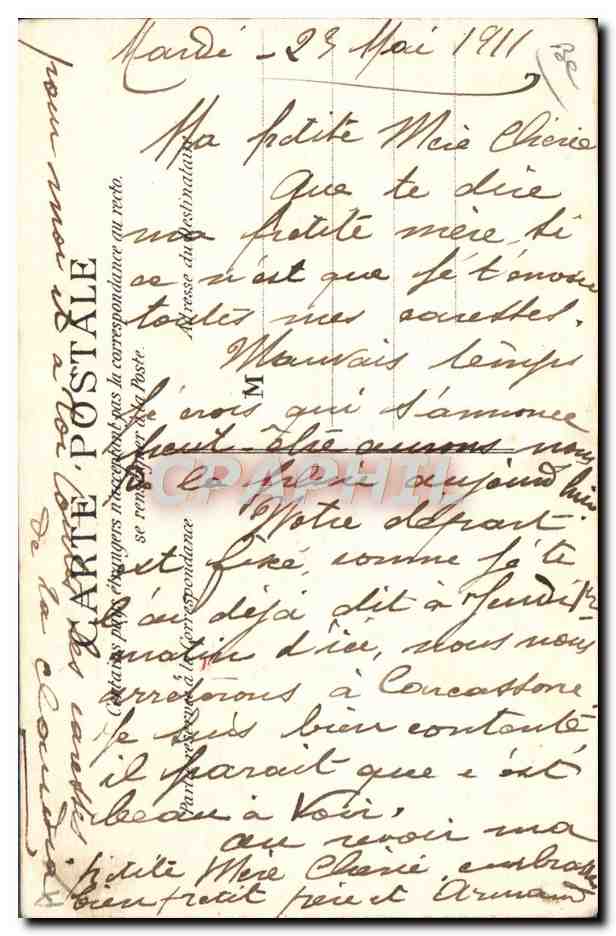 Mardi - 23 Mai 1911
Ma petite Mère Chérie
Que te dire
ma petite mère, si
ce n'est que je t'envoie
toutes mes caresses.
Mauvais temps
je crois qui s'annonce
peut-être aurons nous
de la pluie aujourd'hui
Notre départ
est fixé, comme je te
l'ai déjà dit à Jeudi
matin d'ici, nous nous
arreterons à Carcassone
Je suis bien contente
il parait que c'est
beau à voir.
au revoir ma
petite Mère Chérie, embrasse
bien petit père et Armand
pour moi et à toi toutes les caresses
de ta Claudia
CARTE POSTALE
Certains pays étrangers n'acceptant pas la correspondance au recto.
se renseigner à la Poste.
Partie réservée à la Correspondance
Adresse du destinataire
M
CPARPHIL